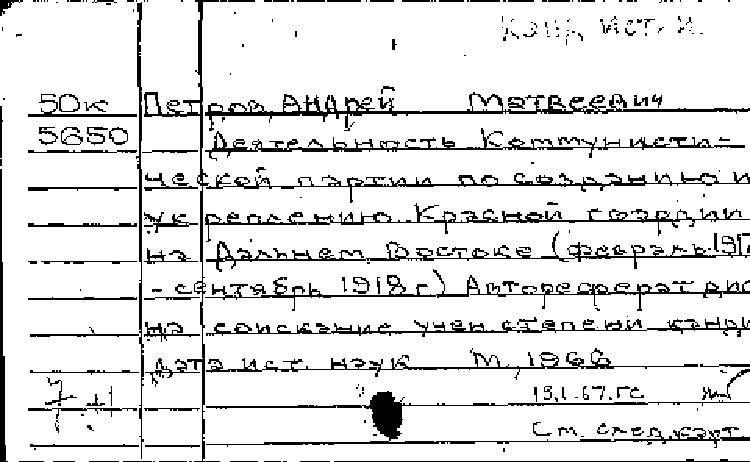 Канд. ист. н.
50к Петров, Андрей Матвеевич
5650 Деятельность Коммунисти-
ческой партии по созданию и
укреплению Красной гвардии
на Дальнем Востоке (февраль 1917
- сентябрь 1918 г.) Автореферат дис
на соискание учен. степени канди
дата ист. наук М., 1966
19.1.67. гс
См. след. карт